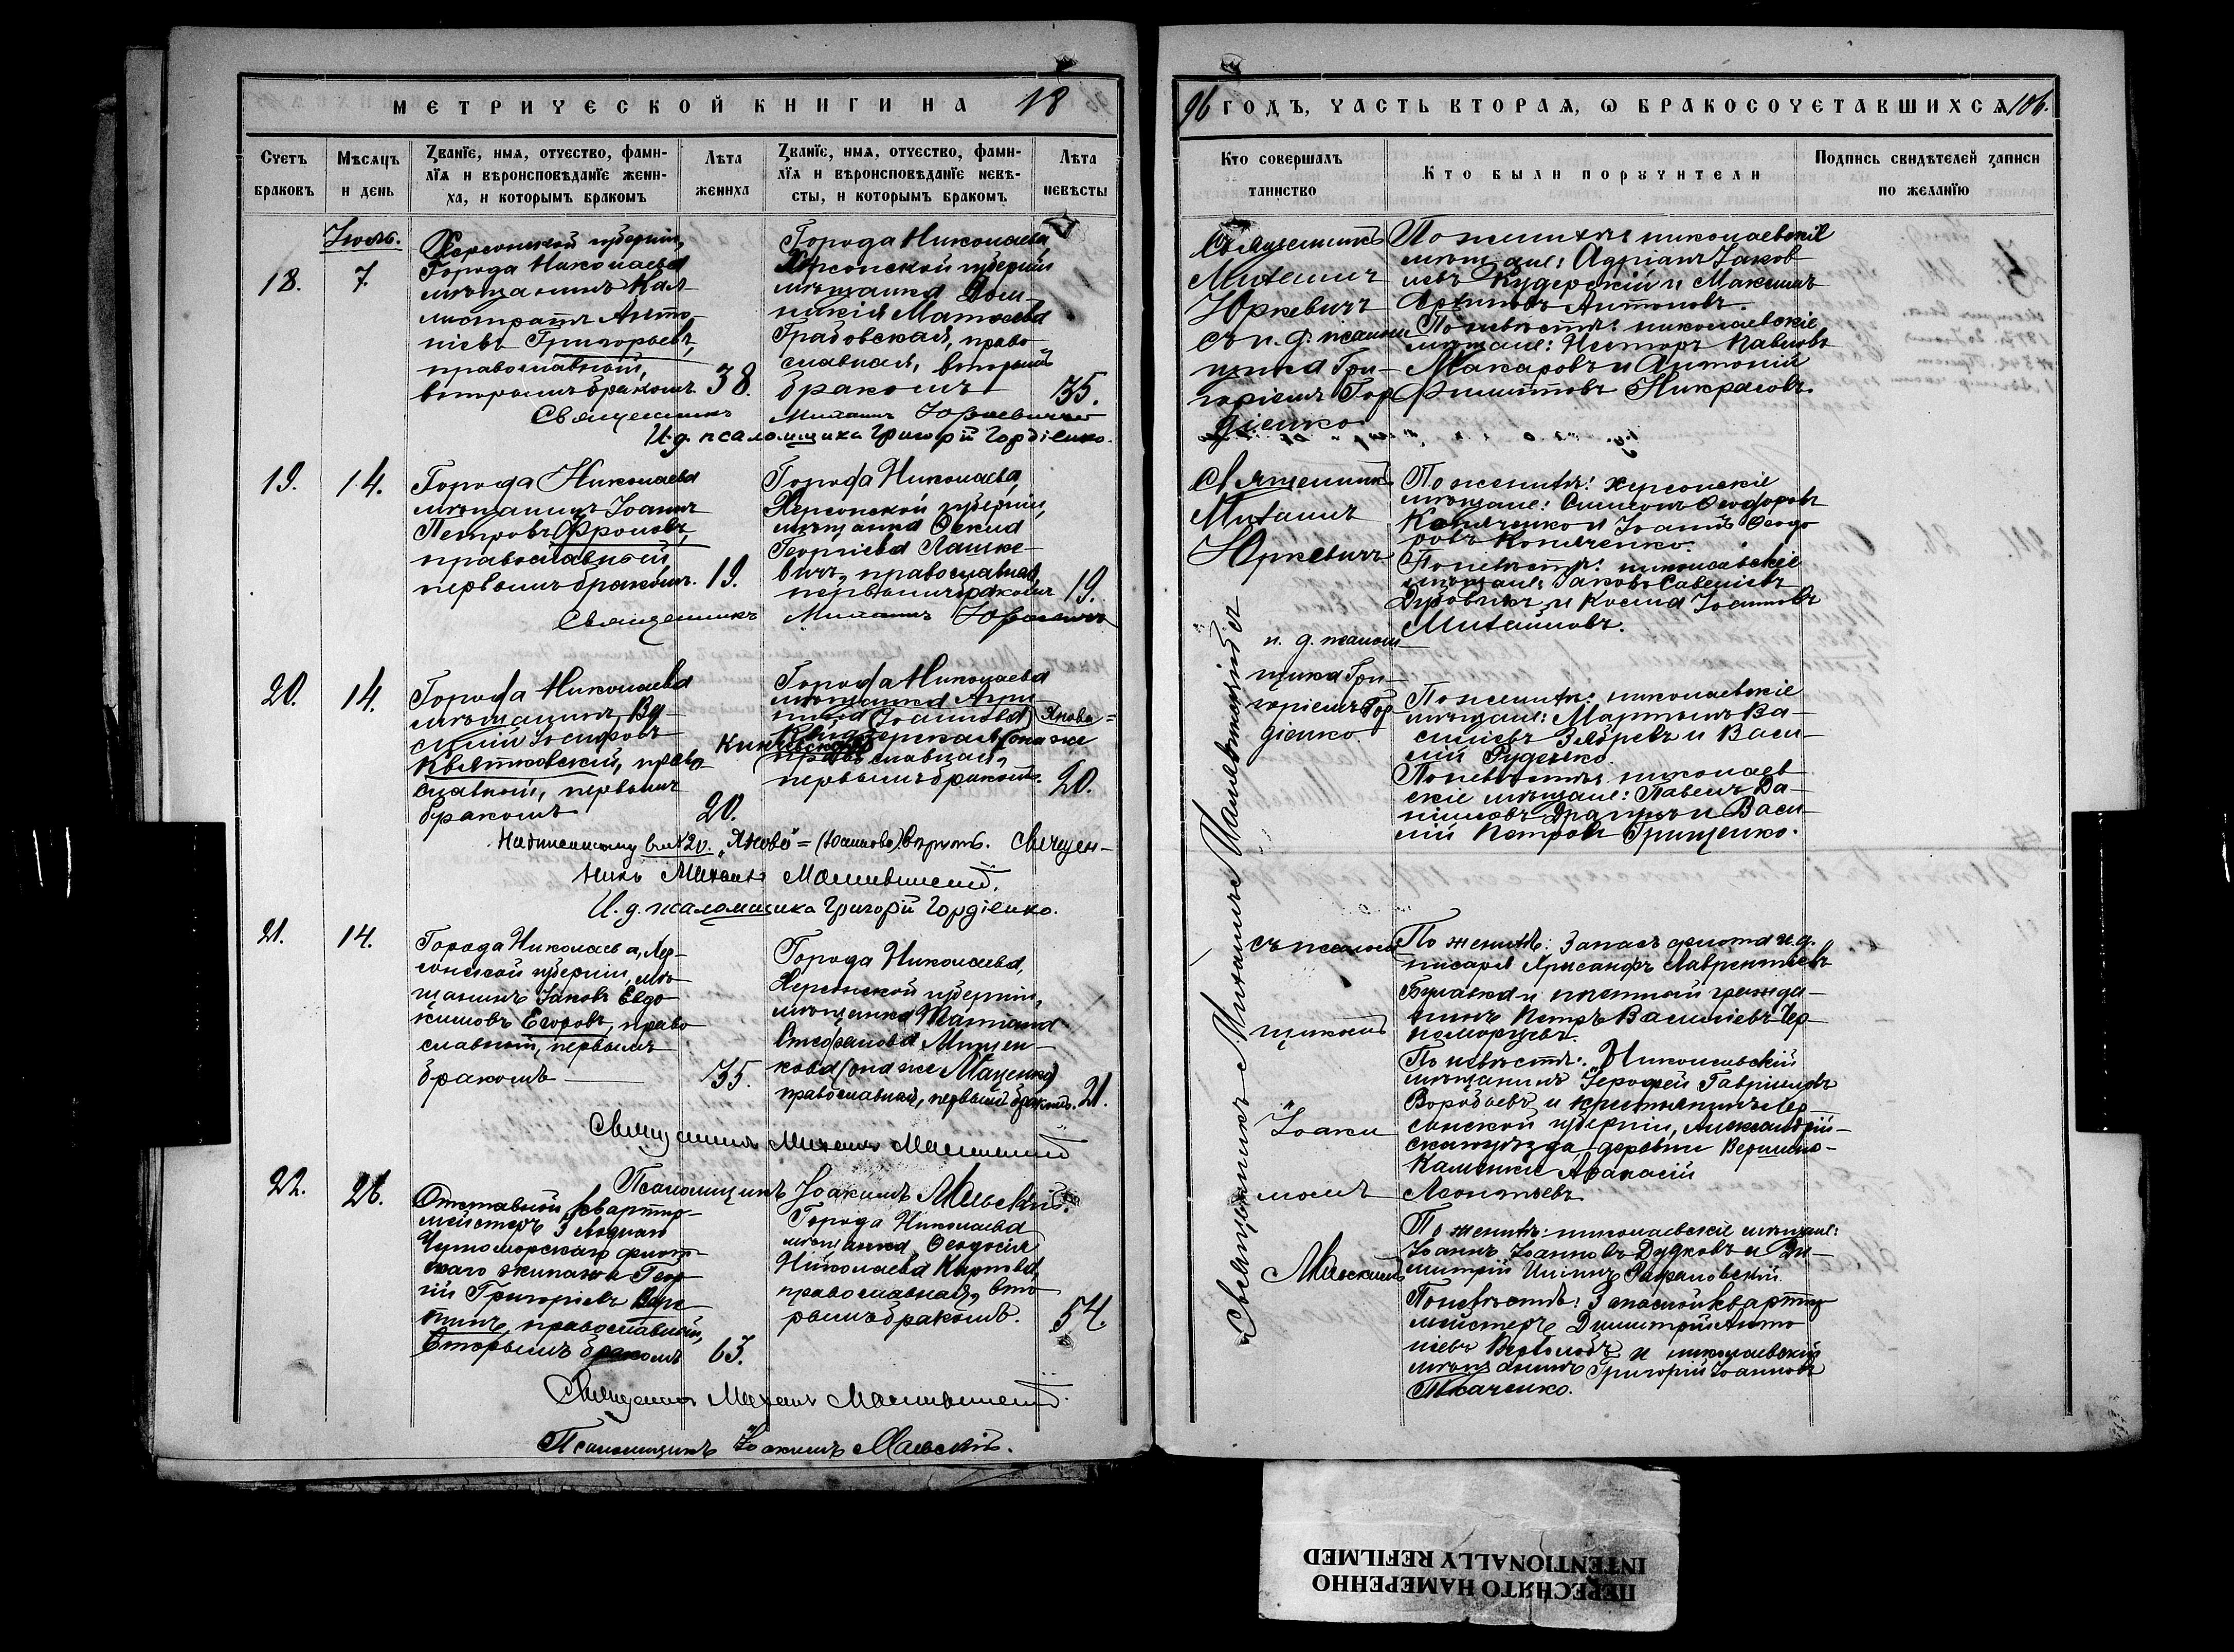 МЕТРИЧЕСКОЙ КНИГИ НА 18
Счетъ браковъ
Мѣсяцъ и день
Званїе, имя, отчество, фами-
лїя и вѣроисповѣданїе жени-
ха, и которымъ бракомъ
Лѣта жениха
Званїе, имя, отчество, фами-
лїя и вѣроисповѣданїе невѣ-
сты, и которымъ бракомъ
Лѣта невѣсты
Іюль.
18.
7.
Херсонской губерніи,
Города Николаева
мѣщанинъ Кал-
листратъ Анто-
ніевъ Григорьевъ,
православный,
вторымъ бракомъ
38.
Города Николаева
Херсонской губерніи
мѣщанка Дом-
никія Матѳеева
Грабовская, право
славная, вторымъ
бракомъ
35.
Священникъ Михаилъ Юркевичъ
И. д. псаломщика Григорій Гордіенко.
19.
14.
Города Николаева
мѣщанинъ Іоаннъ
Петровъ Фроловъ,
православный,
первымъ бракомъ.
19.
Города Николаева,
Херсонской губерніи,
мѣщанка
Георгіева
православная,
первымъ бракомъ
19.
Священникъ Михаилъ Юркевичъ
20.
14.
Города Николаева
мѣщанинъ Ва-
силій Іосифовъ
Квятковский, право-
славный, первымъ
бракомъ
20.
Города Николаева
мѣщанка Агри
пина (Іоаннова) Якова=
(она же
православная,
первымъ бракомъ.
20.
Надписанному въ №20. „Якова“ = (Іоаннова) вѣрить. Священ-
никъ Михаилъ
И. д. псаломщика Григорій Гордіенко.
21.
14.
Города Николаева, Хер-
сонской губерніи, мѣ
щанинъ Іаковъ Евдо
кимовъ Егоровъ, право
славный, первымъ
бракомъ
35.
Города Николаева,
Херсонской губерніи,
мѣщанка Татіана
Стефанова Мищен
кова (она же Маценко)
православная, первымъ бракомъ.
21.
Священникъ Михаилъ
Псаломщикъ Іоакимъ
22.
28.
Отставной кварти-
мейстеръ
Черноморскаго флот-
скаго экипажа Геор
гій Григорьевъ
православный,
вторымъ бракомъ
63.
Города Николаева
мѣщанка Ѳеодосія
Николаева Карпова,
православная, вто
рымъ бракомъ.
54.
Священникъ Михаилъ
Псаломщикъ Іоакимъ
96 ГОДЪ, ЧАСТЬ ВТОРАЯ, Ѡ БРАКОСОЧЕТАВШИХСѦ 106.
Кто совершалъ таинство
Кто были порꙋчители
Подпись свидѣтелей записи по желанїю
Священникъ
Михаилъ
Юркевичъ
съ и. д. псалом
щика Гри-
горіемъ Гор
діенко
По женихѣ: николаевскіе
мѣщане: Адріанъ Іаков
левъ Кудерскій и Максимъ
Антоновъ.
По невѣстѣ: николаевскіе
мѣщане: Несторъ Павловъ
Макаровъ и Антоній
Филипповъ Никрасовъ.
Священникъ
Михаилъ
Юркевичъ
и. д. псалом
щика Гри-
горіемъ Гор
діенко.
По женихѣ: херсонскіе
мѣщане: Симеонъ Ѳеодоровъ
и Іоаннъ Ѳеодо
ровъ
По невѣстѣ: николаевскіе
мѣщане: Іаковъ Савельевъ
и Косма Іоанновъ
Михайловъ.
По женихѣ: николаевскіе
мѣщане: Мартынъ Ва-
сильевъ и Васи-
лій Руденко.
По невѣстѣ: николаев
скіе мѣщане: Павелъ Да-
ниловъ и Васи
лій Петровъ Грищенко.
Священникъ Михаилъ
съ псалом
щикомъ
Іоаки
момъ
По женихѣ: Запасъ флота и. д.
писаря Хрисанфъ Лаврентьевъ
Булавка и почетный гражда-
нинъ Петръ Васильевъ Чер
номорцевъ.
По невѣстѣ: Николаевскій
мѣщанинъ Іерофей Гавриловъ
Воробьевъ и крестьянинъ Хер-
сонской губерніи, Александрій-
скаго уѣзда, деревни
Каменки Афанасій
Леонтьевъ
По женихѣ: николаевскіе мѣщане:
Іоаннъ Іоанновъ Дудковъ и Ди-
митрій Рафаловскій.
По невѣстѣ: Запасной кварти
мейстеръ Димитрій Анто
ніевъ и николаевскій
мѣщанинъ Григорій Іоанновъ
Ткаченко.
ПЕРЕСНЯТО НАМЕРЕННО
INTENTIONALLY REFILMED